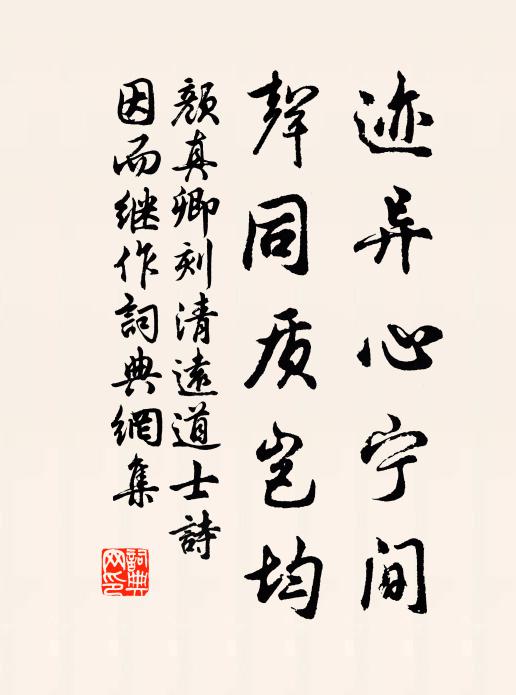 迹异心宁间
聲同质岂均
颜真卿刻清遠道士詩
因而继作詞典網集
詞典网印